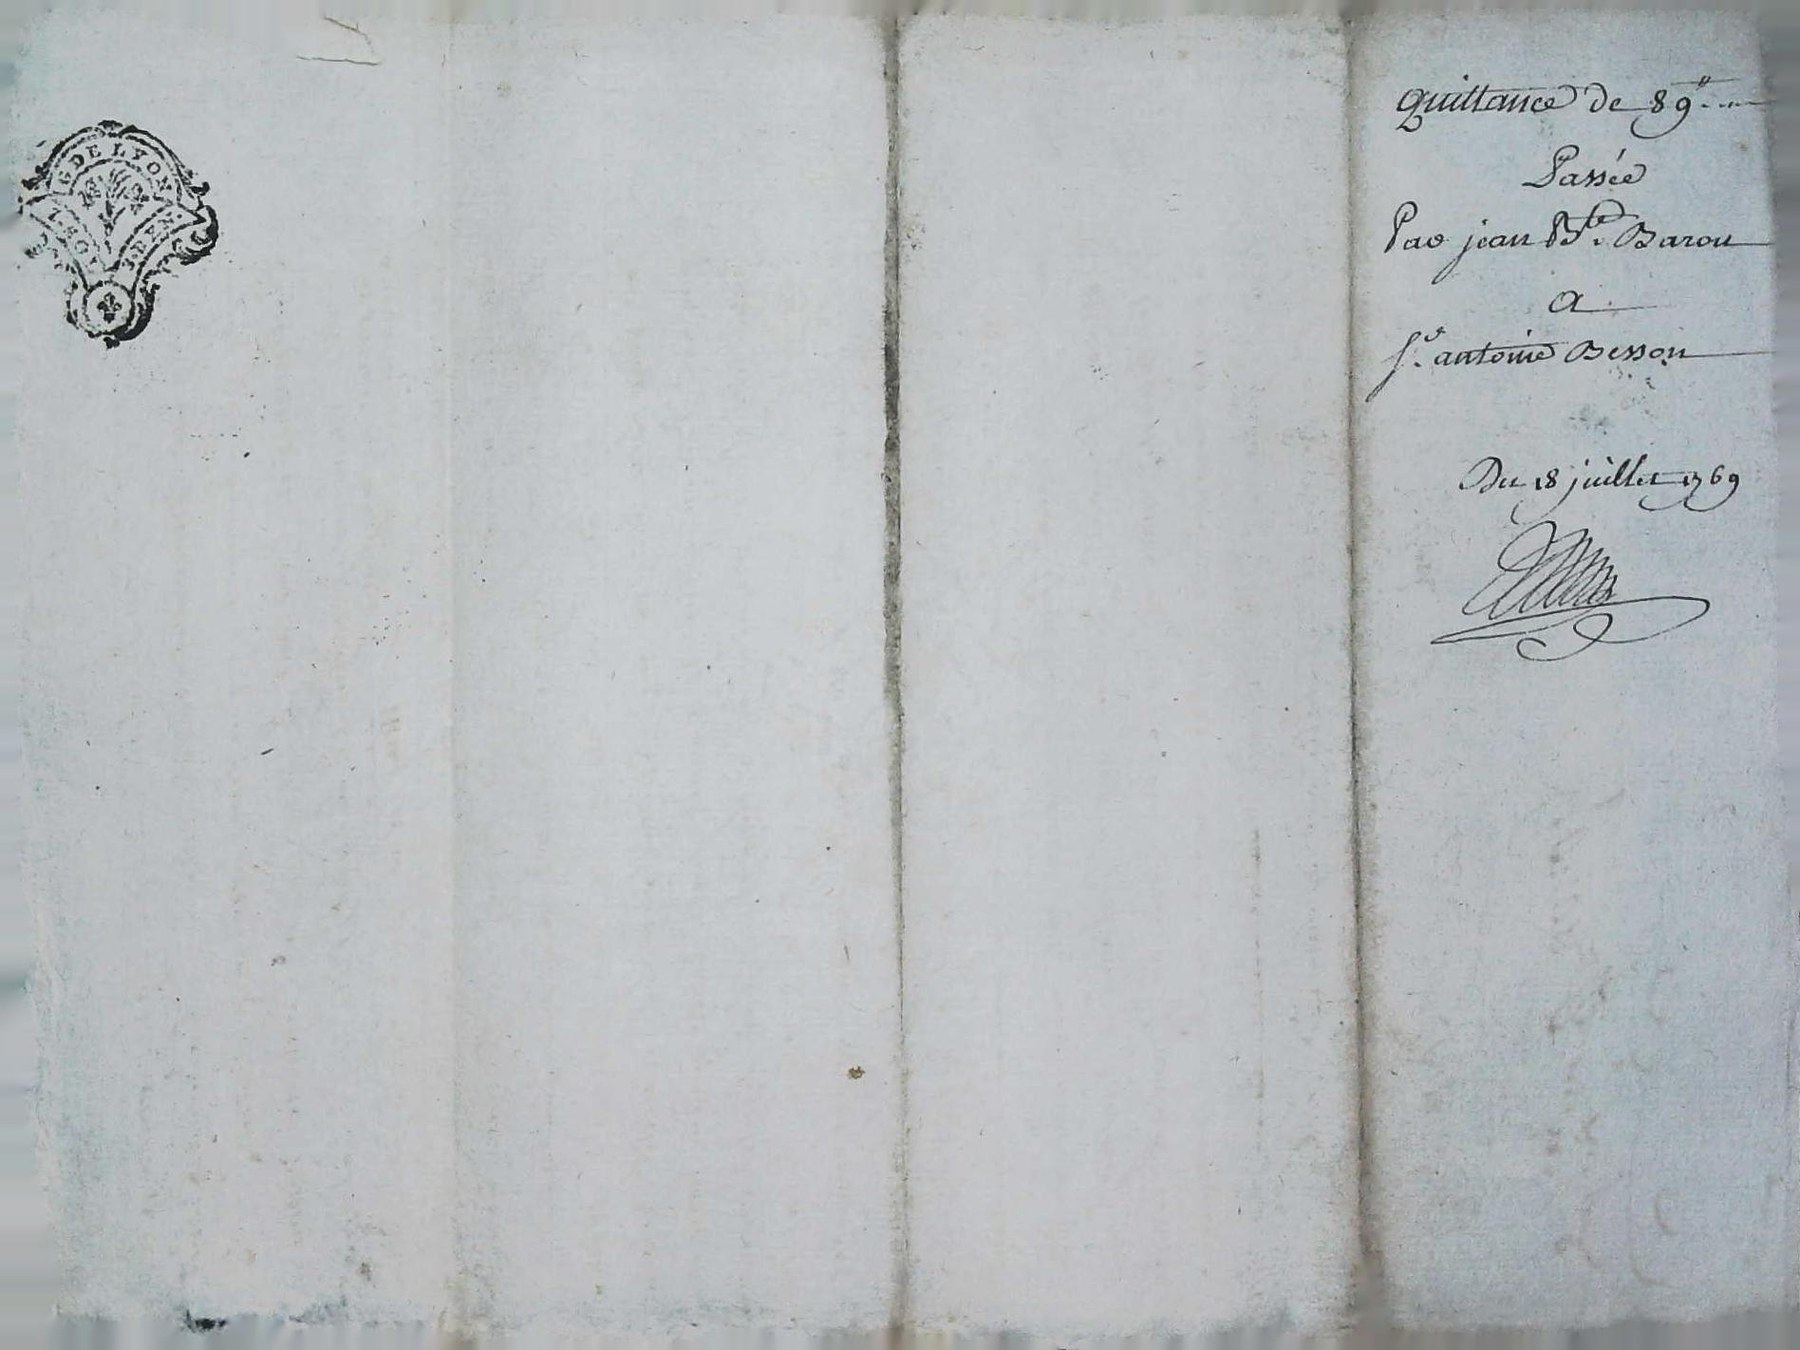 G DE LYON
Quittance de 89"
Passée
Par jean Bte. Barou
a
Sr. antoine Besson
Du 18 juillet 1769